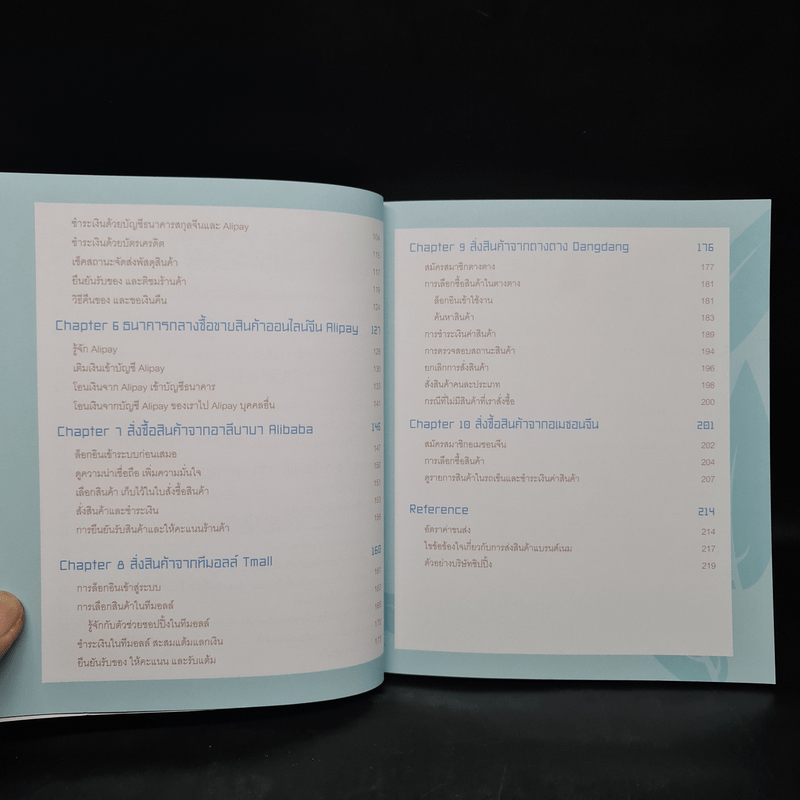 ชำระเงินด้วยบัญชีธนาคารสกุลจีนและ Alipay
ชำระเงินด้วยบัตรเครดิต
เช็คสถานะจัดส่งพัสดุสินค้า
ยืนยันรับของ และติชมร้านค้า
วิธีคืนของ และขอเงินคืน 124
Chapter 6 ธนาคารกลางซื้อขายสินค้าออนไลน์จีน Alipay 127
รู้จัก Alipay 128
เติมเงินเข้าบัญชี Alipay
โอนเงินจาก Alipay เข้าบัญชีธนาคาร
โอนเงินจากบัญชี Alipay ของเราไป Alipay บุคคลอื่น 141
Chapter 7 สั่งซื้อสินค้าจากอาลีบาบา Alibaba 146
ล็อกอินเข้าระบบก่อนเสมอ 147
ดูความน่าเชื่อถือ เพิ่มความมั่นใจ 150
เลือกสินค้า เก็บไว้ในใบสั่งซื้อสินค้า
สั่งสินค้าและชำระเงิน
การยืนยันรับสินค้าและให้คะแนนร้านค้า
Chapter 8 สั่งสินค้าจากทีมอลล์ Tmall 160
การล็อกอินเข้าสู่ระบบ 161
การเลือกสินค้าในทีมอลล์
รู้จักกับตัวช่วยชอปปิ้งในทีมอลล์
ชำระเงินในทีมอลล์ สะสมแต้มแลกเงิน
ยืนยันรับของ ให้คะแนน และรับแต้ม
Chapter 9 สั่งสินค้าจากตางตาง Dangdang 176
สมัครสมาชิกตางตาง 177
การเลือกซื้อสินค้าในตางตาง 181
ล็อกอินเข้าใช้งาน 181
ค้นหาสินค้า 183
การชำระเงินค่าสินค้า 189
การตรวจสอบสถานะสินค้า 194
ยกเลิกการสั่งสินค้า 196
สั่งสินค้าคนละประเภท 198
กรณีที่ไม่มีสินค้าที่เราสั่งซื้อ 200
Chapter 10 สั่งซื้อสินค้าจากอเมซอนจีน 201
สมัครสมาชิกอเมซอนจีน 202
การเลือกซื้อสินค้า 204
ดูรายการสินค้าในรถเข็นและชำระเงินค่าสินค้า 207
Reference 214
อัตราค่าขนส่ง 214
ไขข้อข้องใจเกี่ยวกับการส่งสินค้าแบรนด์เนม 217
ตัวอย่างบริษัทชิปปิ้ง 219